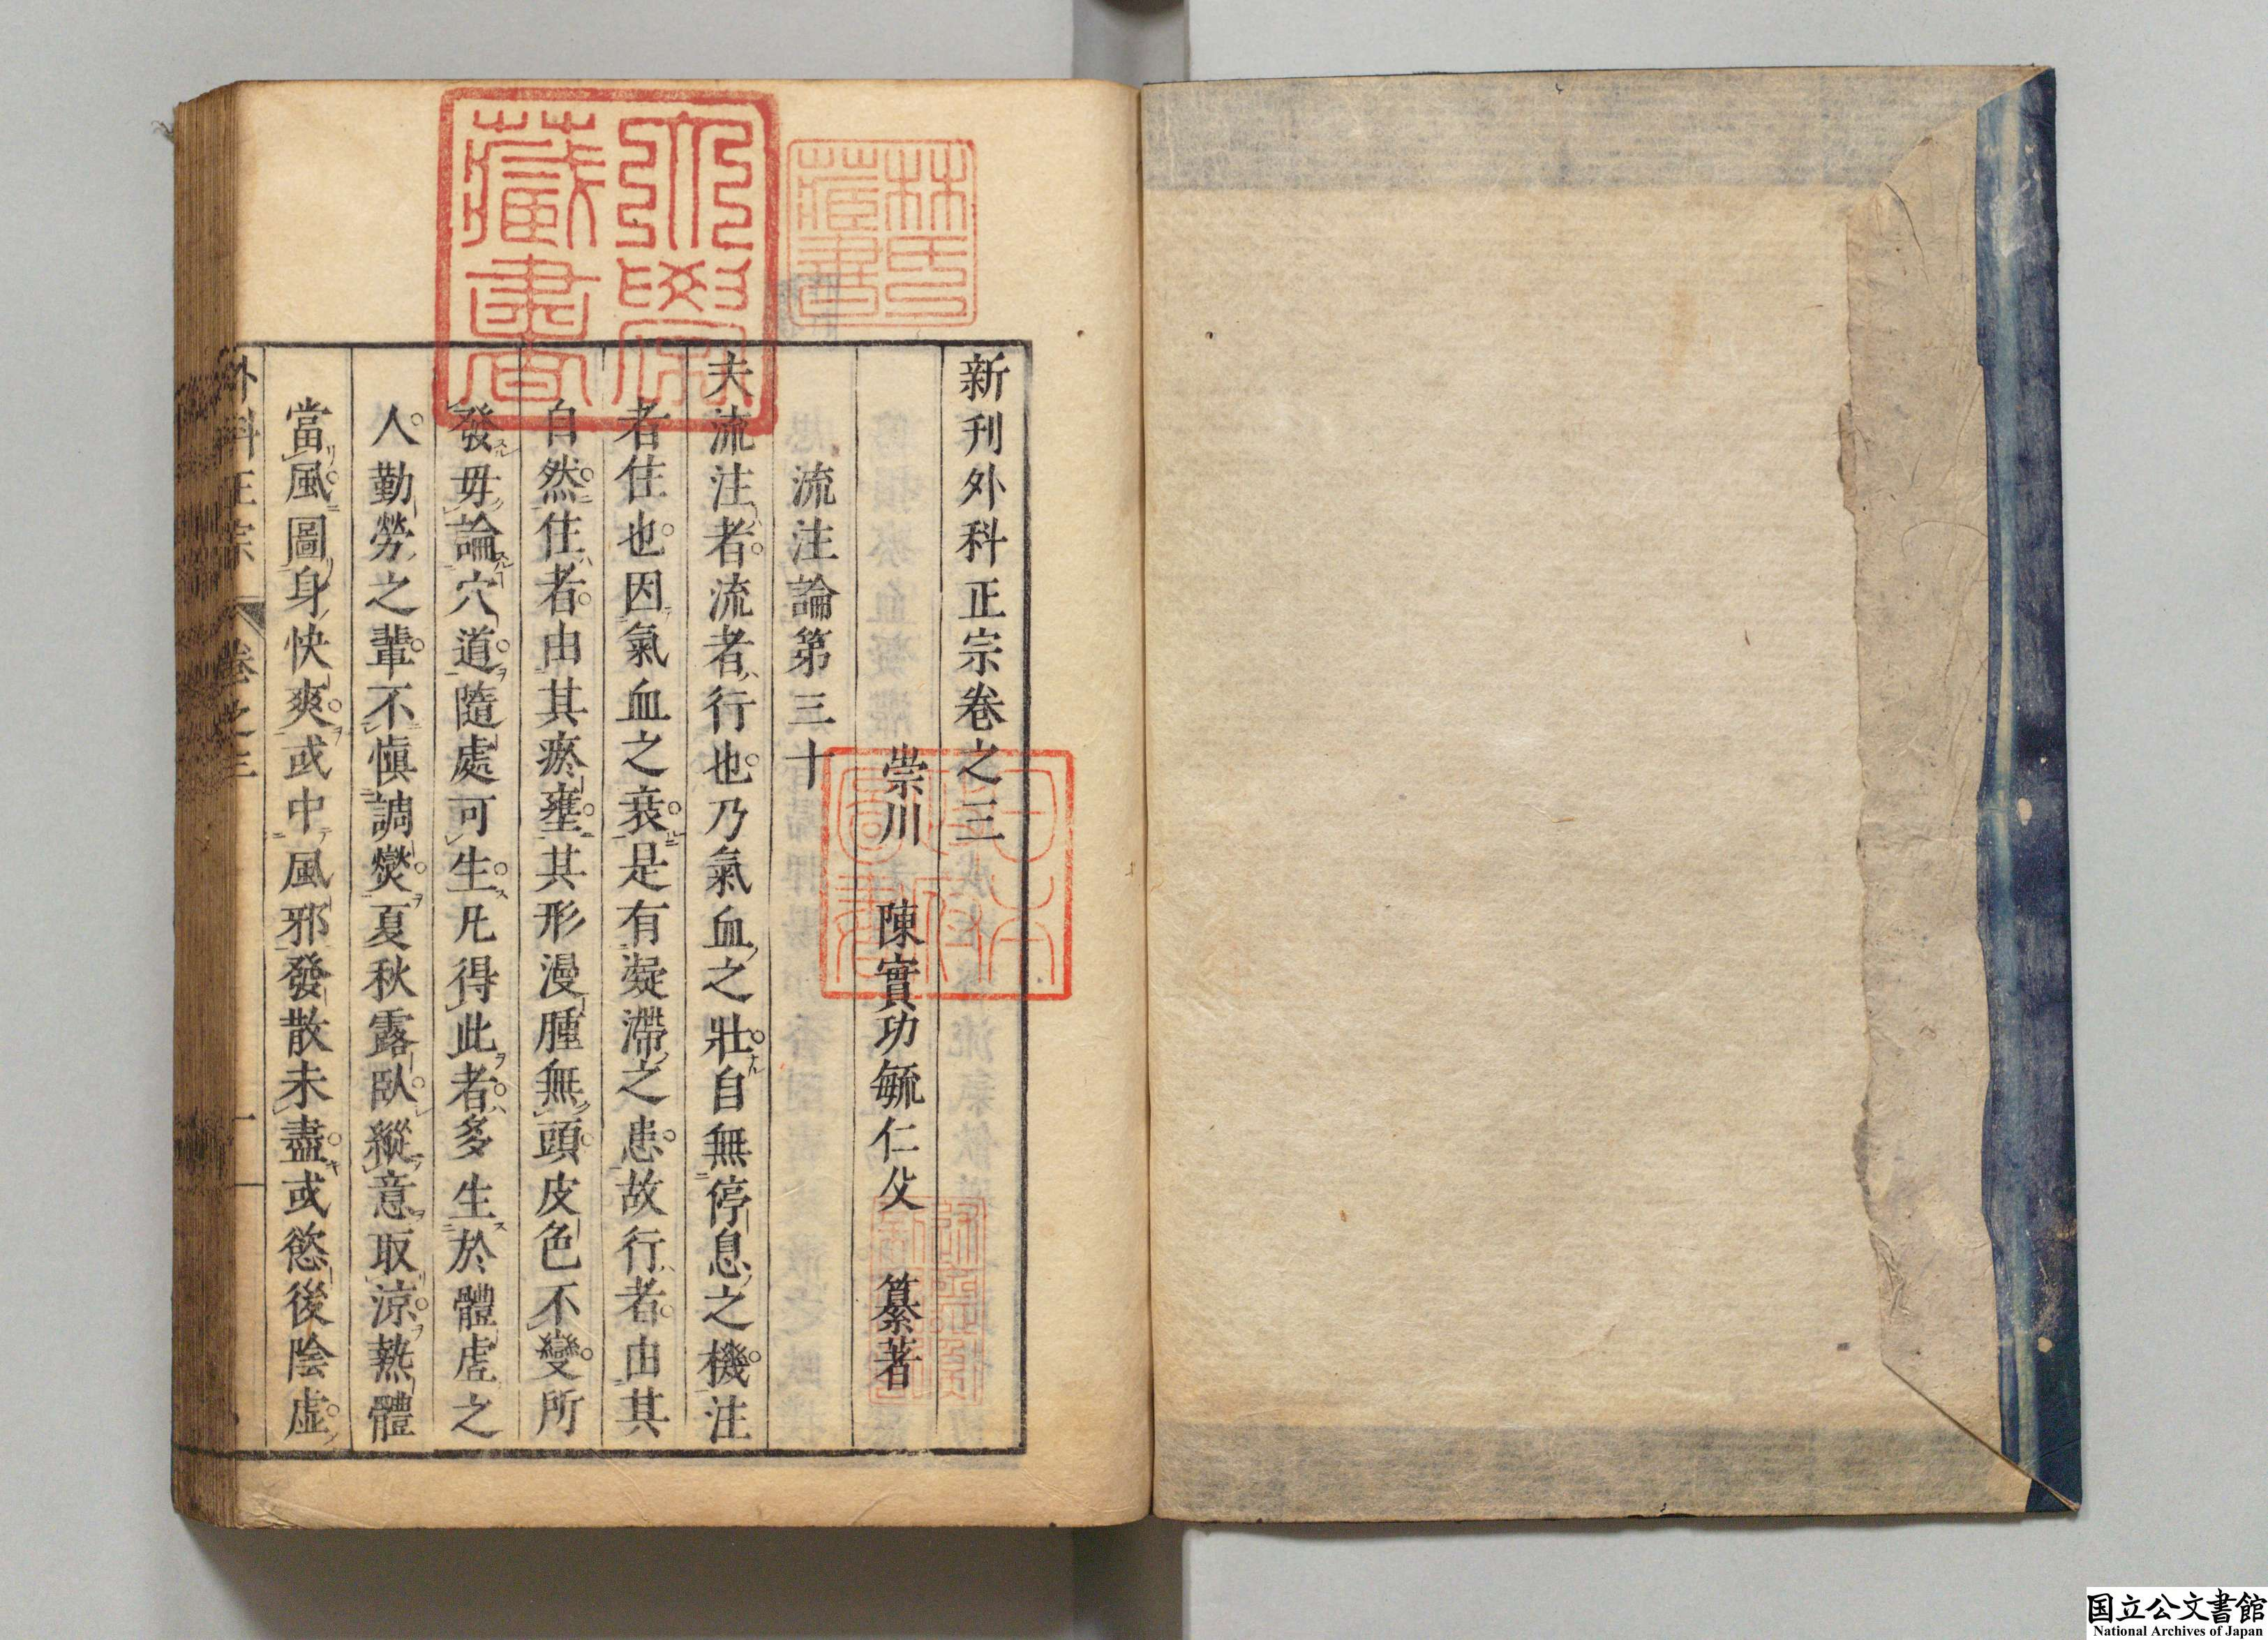 新刊外科正宗卷之三
崇川 陳實功毓仁父 纂著
流注論第三十
夫流注者流者行也乃氣血之壯自無停息之機注
者住也因氣血之衰是有凝滯之患故行者由其
自然住者由其瘀壅其形漫腫無頭皮色不變所
發毋論穴道隨處可生凡得此者多生於體虛之
人勤勞之輩不慎調燮夏秋露臥縱意取涼熱體
當風圖身快爽或中風邪發散未盡或慾後陰虛
外科正宗 卷之三 一
林氏藏書
淺草文庫
日本政府圖書
国立公文書館
National Archives of Japan